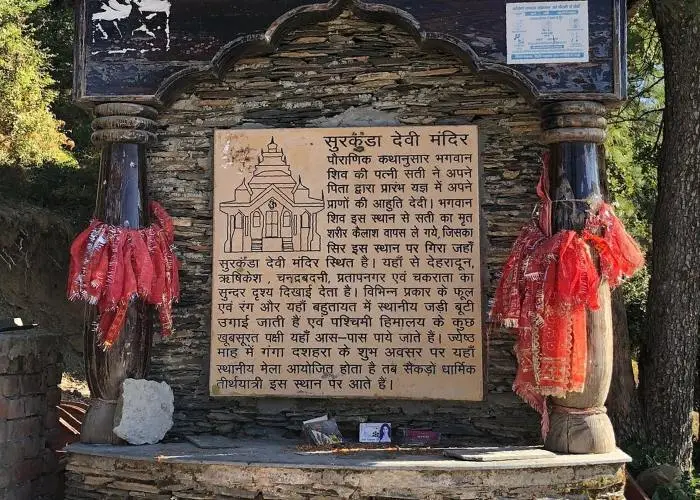 सुरकुंडा देवी मंदिर
पौराणिक कथानुसार भगवान
शिव की पत्नी सती ने अपने
पिता द्वारा प्रारंभ यज्ञ में अपने
प्राणों की आहुति देदी। भगवान
शिव इस स्थान से सती का मृत
शरीर कैलाश वापस ले गये, जिसका
सिर इस स्थान पर गिरा जहाँ
सुरकंडा देवी मंदिर स्थित है। यहाँ से देहरादून,
ऋषिकेश , चन्द्रबदनी, प्रतापनगर एवं चकराता का
सुन्दर दृश्य दिखाई देता है। विभिन्न प्रकार के फूल
एवं रंग और यहाँ बहुतायत में स्थानीय जड़ी बूटी
उगाई जाती हैं एवं पश्चिमी हिमालय के कुछ
खूबसूरत पक्षी यहाँ आस–पास पाये जाते हैं। ज्येष्ठ
माह में गंगा दशहरा के शुभ अवसर पर यहाँ
स्थानीय मेला आयोजित होता है तब सैंकड़ों धार्मिक
तीर्थयात्री इस स्थान पर आते हैं।